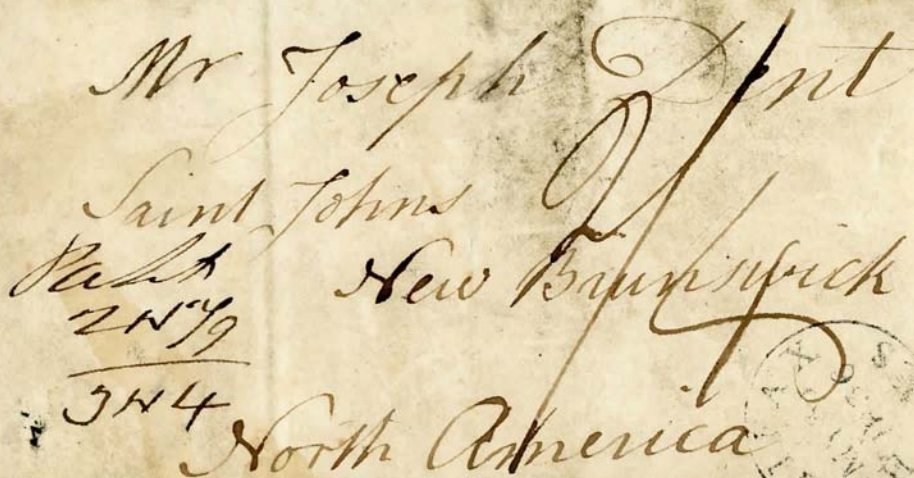 Mr Joseph Dent
Saint Johns
New Brunswick
North America